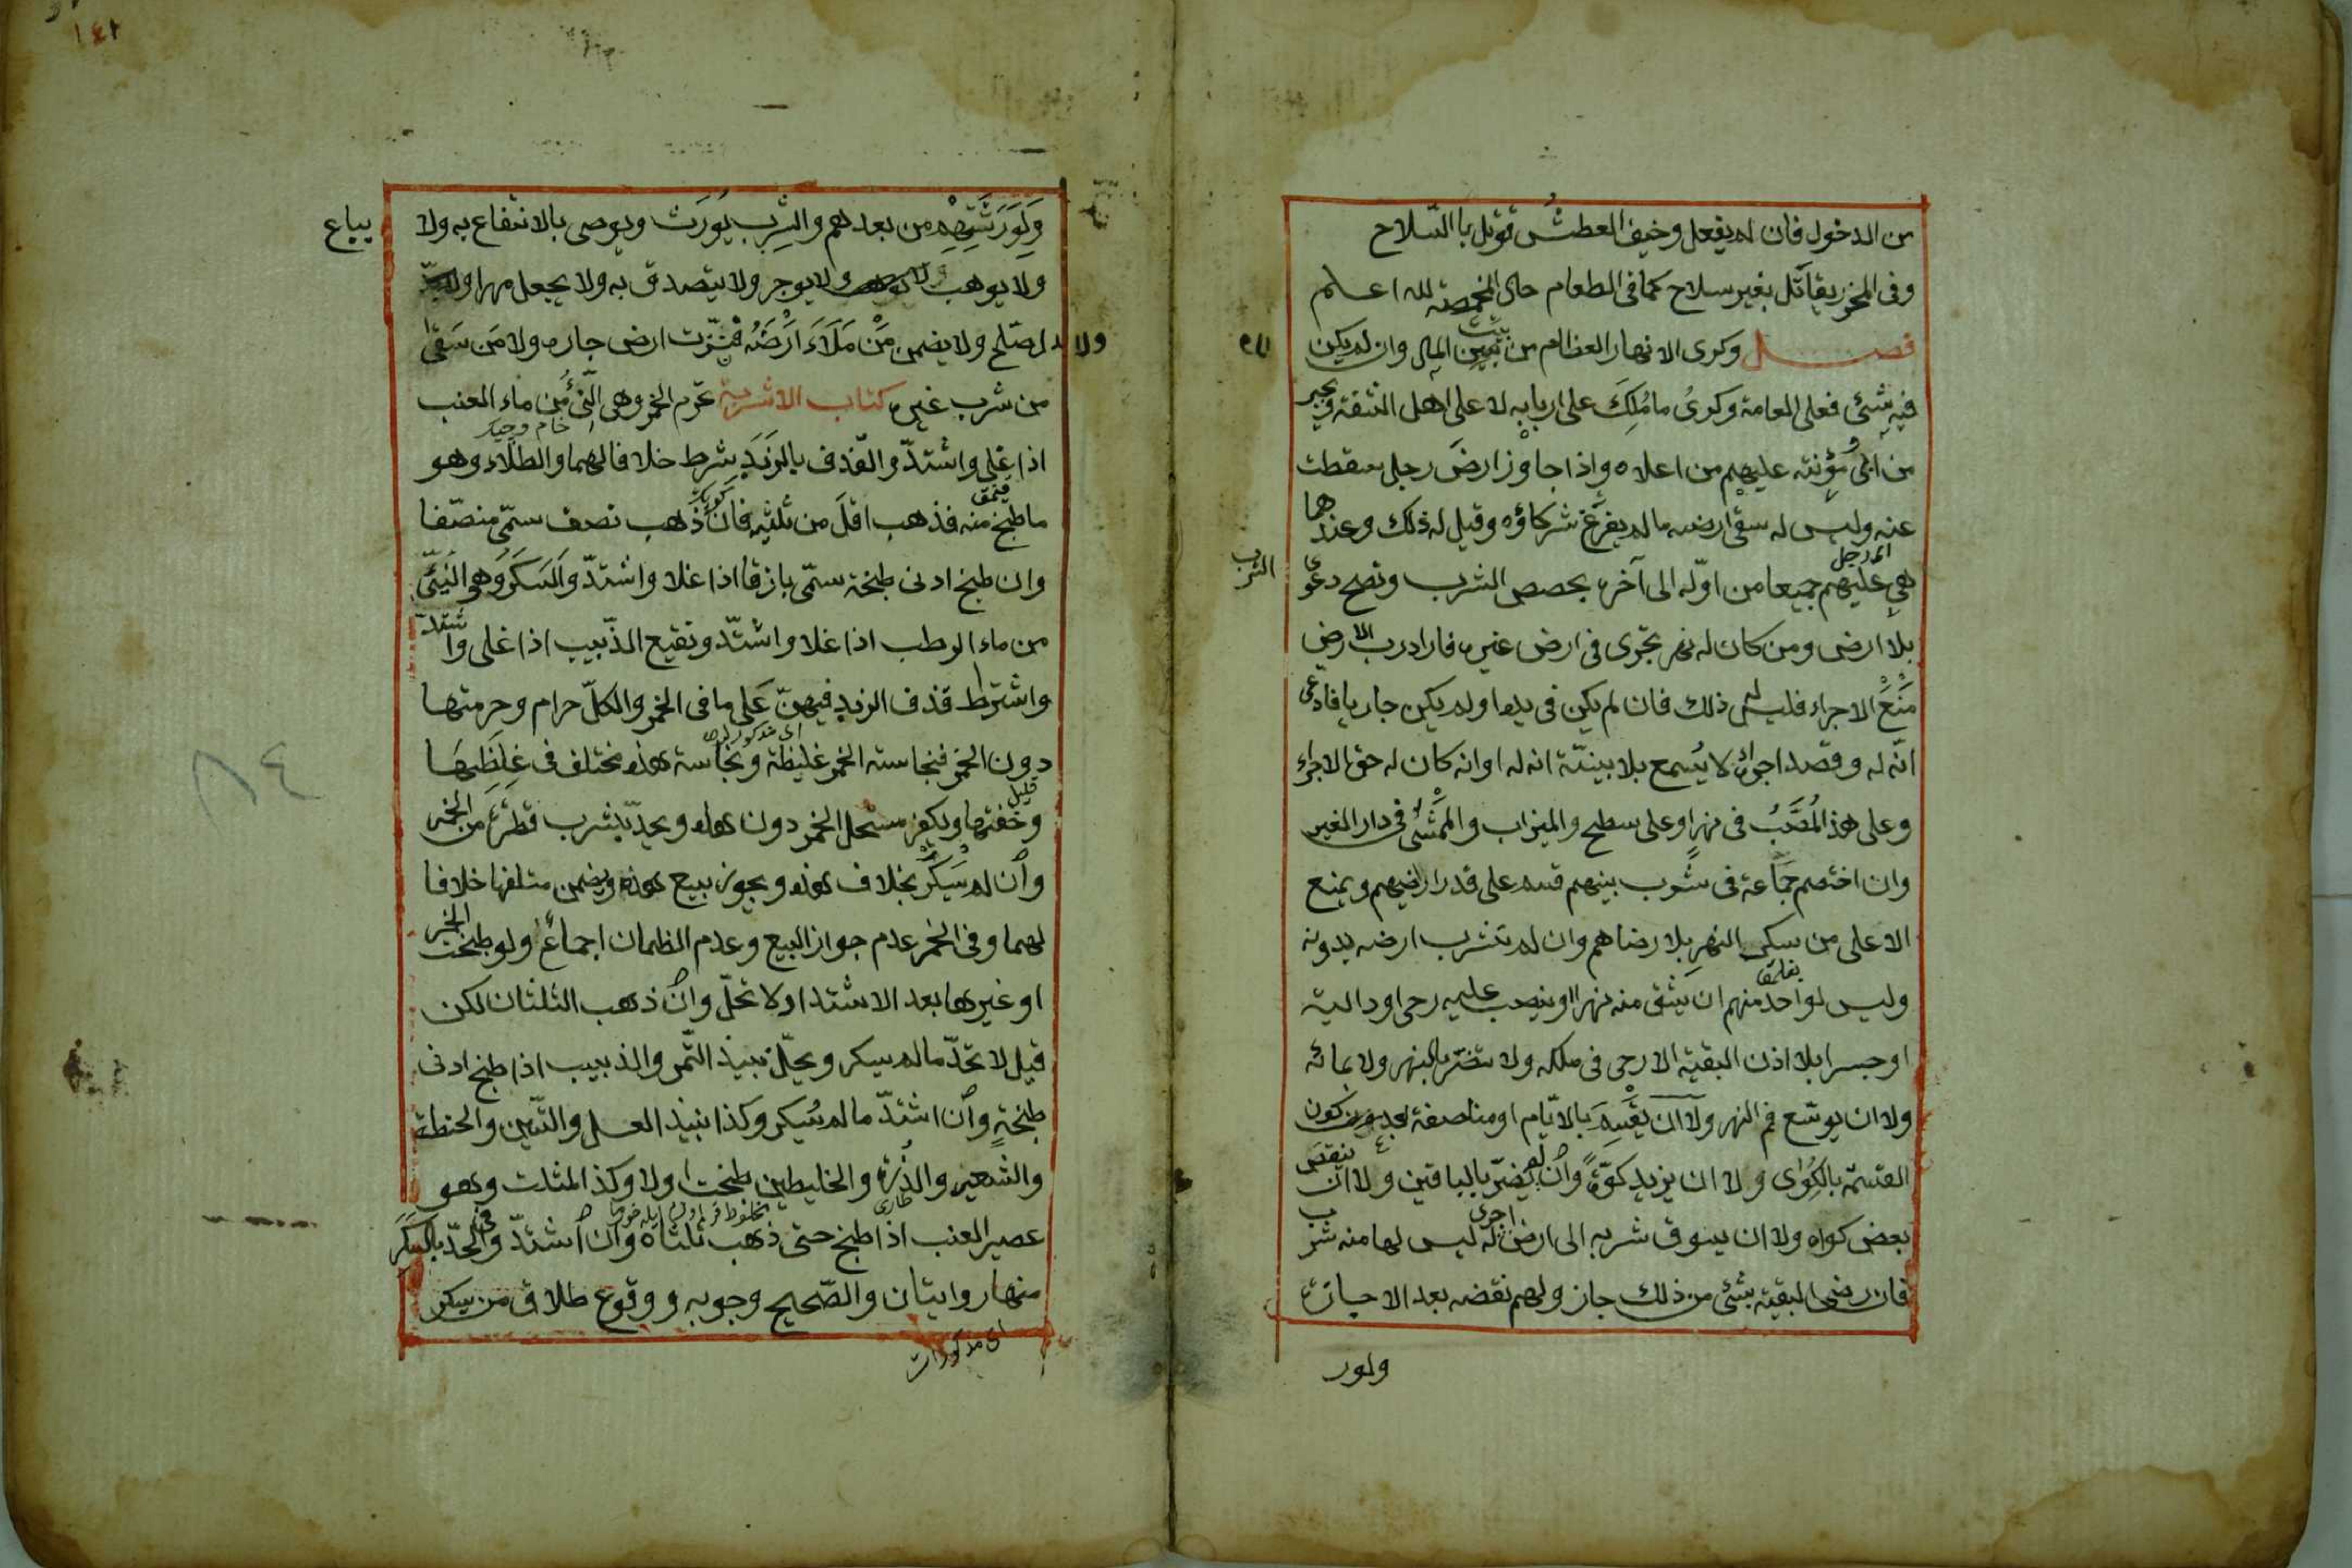 من الدخول فان لم يفعل وخيف العطش قوتل باالسّلاح
وفى المحرز يقاتَل بغير سلاح كما فى الطعام حال المخمصة لله اعلم
فصل وكرى الانهار العظام من بيت المال وان لم يكن
فيه شئ فعلى العامة وكرىُ ما مُلِكَ على اربابه لا على اهل الشفة ويجبر
من ابى ومؤنته عليهم من اعلاه واذا جاوز ارضَ رجل سقطت
عنه وليس له سقى ارضه ما لم يفرغ شركاؤه وقيل له ذلك وعندهما
اى رجل
هى عليهم جميعا من اوّله الى آخره بحصص الشرب وتصح دعوى
الشرب
بلا ارض ومن كان له نهر يجرى فى ارض غيره فاراد رب الارض
مَنْعَ الاجراء فليس له ذلك فان لم يكن فى يده او لم يكن جاريا فادعى
انّه له وقصد اجراءه لا يُسمع بلا بينّة انه له او انه كان له حق الاجراء
وعلى هذ المُصَبُّ فى نهر او على سطح والميزاب والمَمْشَى فى دار الغير
وان اختصم جماعة فى شرب بينهم قسم على قدر اراضيهم ويمنع
الاعلى من سكر النهر بلا رضاهم وان لم تشرب ارضه بدونه
وليس لواحد منهم ان يشق منه نهرا او ينصب عليه رحى او دالية
او جسرا بلا اذن البقية الا رحى فى ملكه ولا تضرّ بالنهر ولا بمائه
ولا ان يوسّع فم النهر ولا ان يقسِم بالايّام او مناصفة بعد كون
القسمة بالكِوٰى ولا ان يزيد كوّةً وان لم يضرّ بالباقين ولا ان ينقص
بعض كواه ولا ان يسوق شربه الى ارض له اجرى ليس لها منه شرب
فان رضى البقية بشئ من ذلك جاز ولهم نقضه بعد الاجازة
ولور
١٤٢
وَلِوَرَثَتِهِم من بعدهم والشِرب يُورَث ويوصى بالانتفاع به ولا يباع
ولا يوهب ولا يوجر ولا يتصدق به ولا يجعل مهرا
ولا بدل صلح ولا يضمن مَنْ مَلَاَ اَرْضَهُ فنزّت ارض جاره ولا مَن سَقىٰ
من شرب غيره كتاب الاشربة تحرم الخمر وهى النّئُ من ماء العنب
خام
اذا غلى واشتدّ والقذف بالزبَدِ شرط خلافا لهما والطلاء وهو
ما طبخ منه فذهب اقلّ من ثلثيه فان ذهب نصف سمّى منصّفا
وان طبخ ادنى طبخة سمّى باذقا اذا غلا واشتدّ والسَكَرُ وهو النّيئ
من ماء الرطب اذا غلا واشتّد ونقيع الذّبيب اذا غلى واشتدّ
واشترط قذف الزبد فيهنّ عَلى ما فى الخمر والكلّ حرام وحرمتها
دون الخمر فنجاسة الخمر غليظة ونجاسة هذه مختلف فى غِلَظِهَا
وخفتها ويكفر مستحل الخمر دون هذه ويحدّ بشرب قطرة من الخمر
قليل
وان لم يَسْكَرْ بخلاف هذه ويجوز بيع هذه ويضمن متلفها خلافا
لهما وفى الخمر عدم جواز البيع وعدم الظمان اجماعٌ ولو طبخت الخمر
او غيرها بعد الاشتداد لا تحلّ وان ذهب الثلثان لكن
قيل لا يحدّ ما لم يسكر ويحلّ نبيذ التّمر والذبيب اذا طبخ ادنى
طبخةٍ وان اشتدّ ما لم يُسكر وكذا نبيذ العسل والتّين والحنطة
والشعير والذّرة والخليطين طبخت اولا وكذ المثلث وهو
عصير العنب اذا طبخ حتى ذهب ثلثاه وان اشتدّ وفى الحدّ بالسُكْر
منها روايتان والصّحيح وجوبه ووقوع طلاق من سكر
اى مذكورات